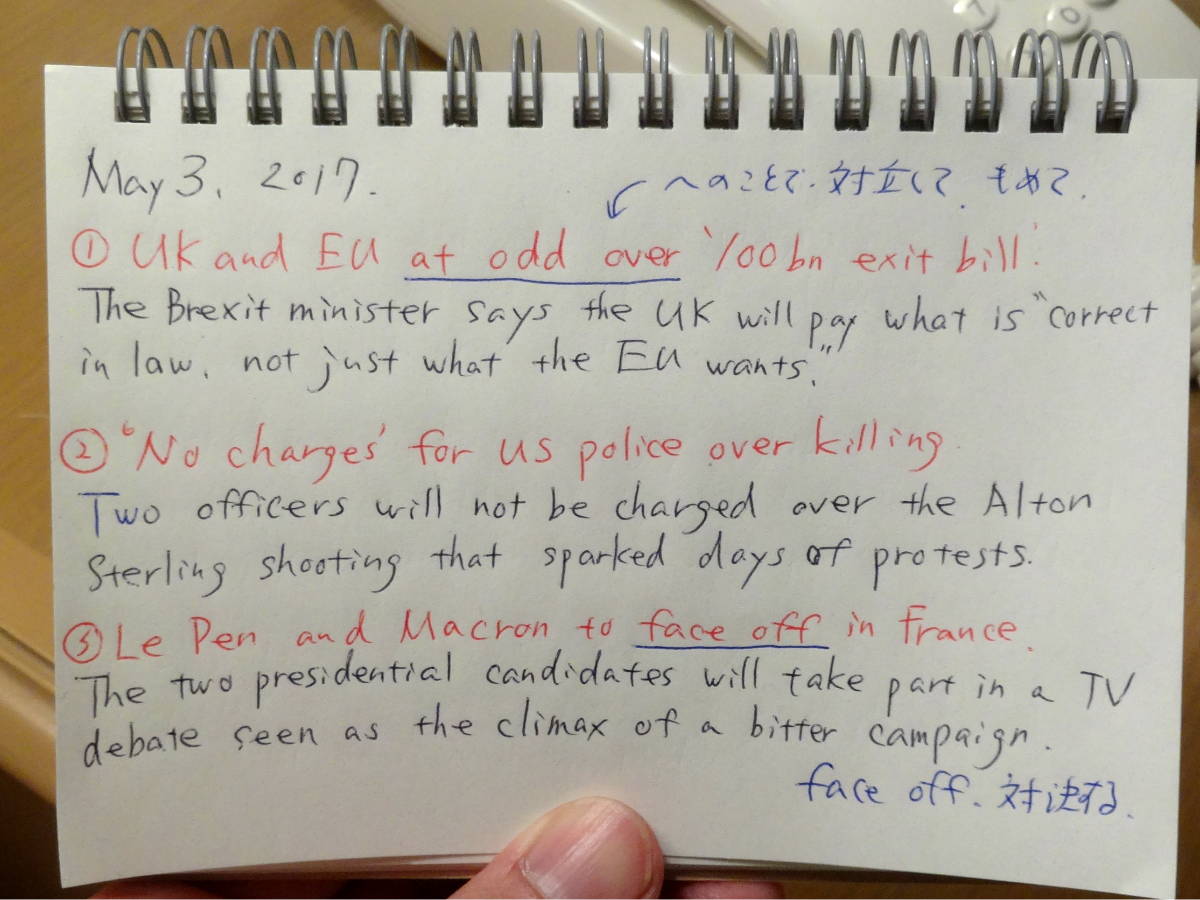 May 3, 2017.
~のことで、対立して、もめて、
① UK and EU at odd over '100bn exit bill'.
The Brexit minister says the UK will pay what is "correct
in law, not just what the EU wants."
② 'No charges' for US police over killing.
Two officers will not be charged over the Alton
Sterling shooting that sparked days of protests.
③ Le Pen and Macron to face off in France.
The two presidential candidates will take part in a TV
debate seen as the climax of a bitter campaign.
face off、対決する、